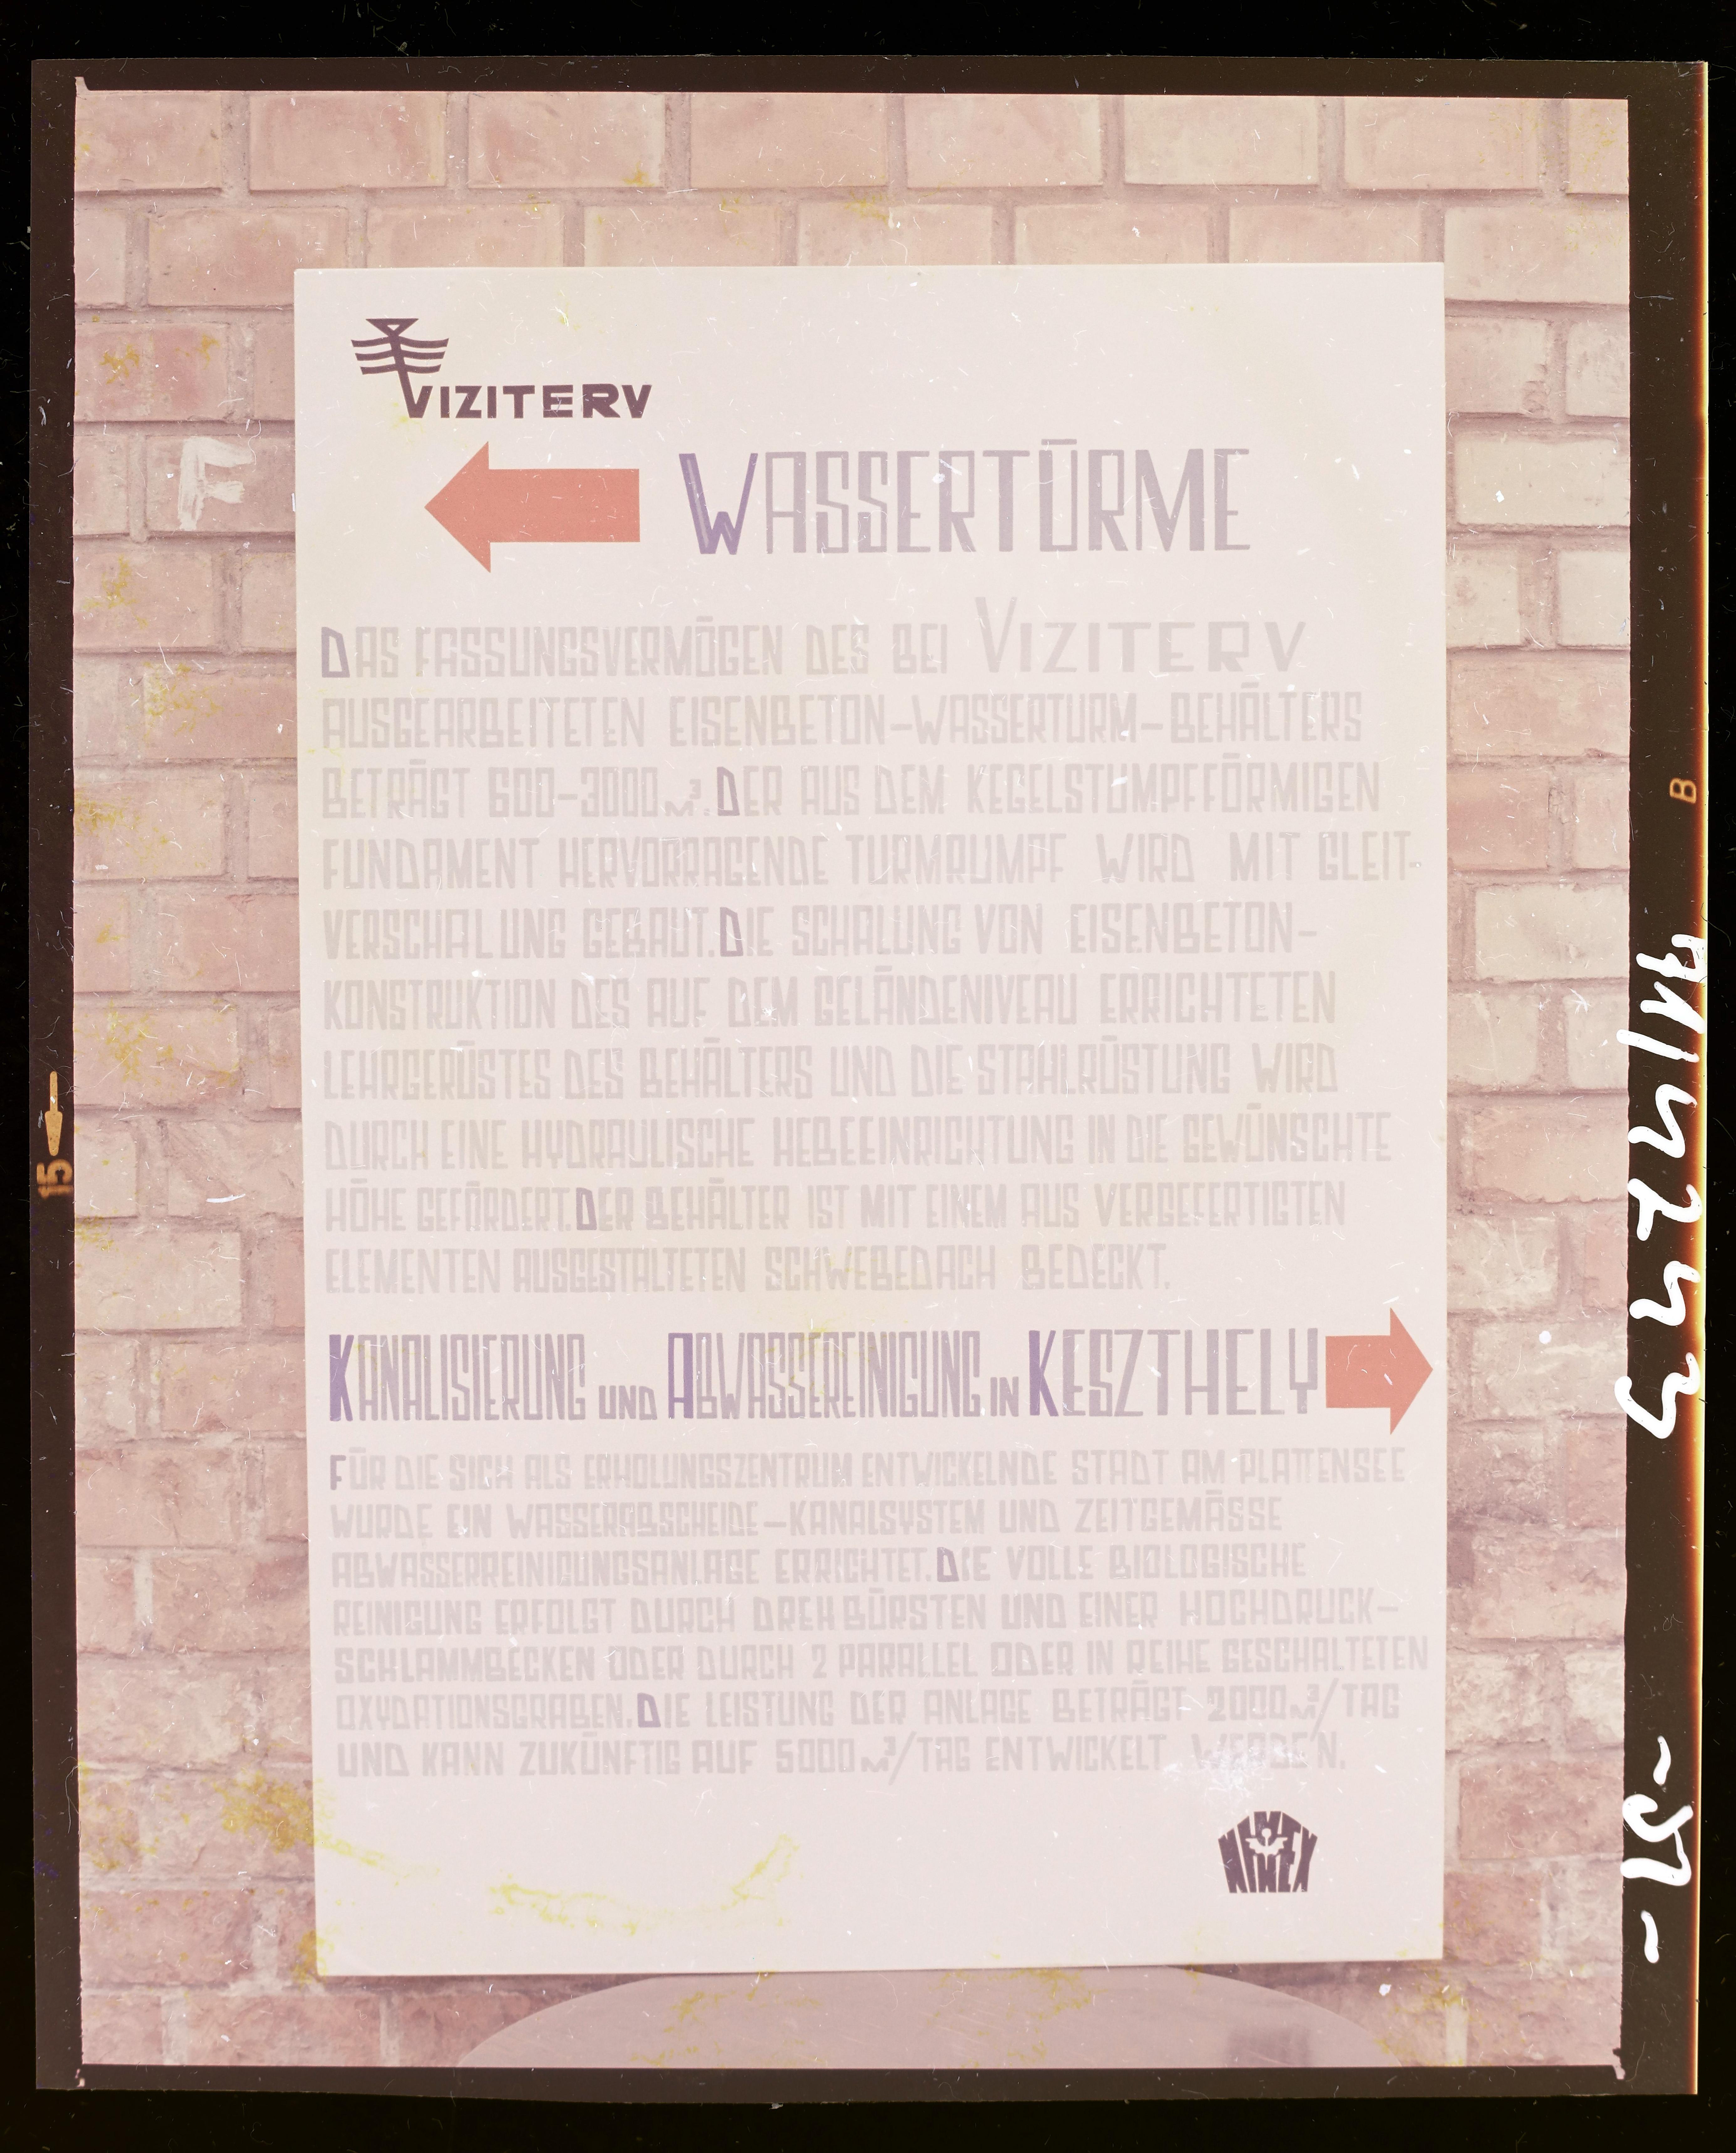 VIZITERV
WASSERTÜRME
DAS FASSUNGSVERMÖGEN DES BEI VIZITERV
AUSGEARBEITETEN EISENBETON-WASSERTURM-BEHÄLTERS
BETRÄGT 600-3000M³. DER AUS DEM KEGELSTUMPFFÖRMIGEN
FUNDAMENT HERVORRAGENDE TURMRUMPF WIRD MIT GLEIT-
VERSCHALUNG GEBAUT. DIE SCHALUNG VON EISENBETON-
KONSTRUKTION DES AUF DEM GELÄNDENIVEAU ERRICHTETEN
LEHRGERÜSTES DES BEHÄLTERS UND DIE STAHLRÜSTUNG WIRD
DURCH EINE HYDRAULISCHE HEBEEINRICHTUNG IN DIE GEWÜNSCHTE
HÖHE GEFÖRDERT. DER BEHÄLTER IST MIT EINEM AUS VERGEFERTIGTEN
ELEMENTEN AUSGESTALTETEN SCHWEBEDACH BEDECKT.
KANALISIERUNG UND ABWASSEREINIGUNG IN KESZTHELY
FÜR DIE SICH ALS ERHOLUNGSZENTRUM ENTWICKELNDE STADT AM PLATTENSEE
WURDE EIN WASSERABSCHEIDE-KANALSYSTEM UND ZEITGEMÄSSE
ABWASSERREINIGUNGSANLAGE ERRICHTET. DIE VOLLE BIOLOGISCHE
REINIGUNG ERFOLGT DURCH DREHBÜRSTEN UND EINER HOCHDRUCK-
SCHLAMMBECKEN ODER DURCH 2 PARALLEL ODER IN REIHE GESCHALTETEN
OXYDATIONSGRABEN. DIE LEISTUNG DER ANLAGE BETRÄGT 2000M³/TAG
UND KANN ZUKÜNFTIG AUF 5000M³/TAG ENTWICKELT WERDEN.
NIMEX
15
B